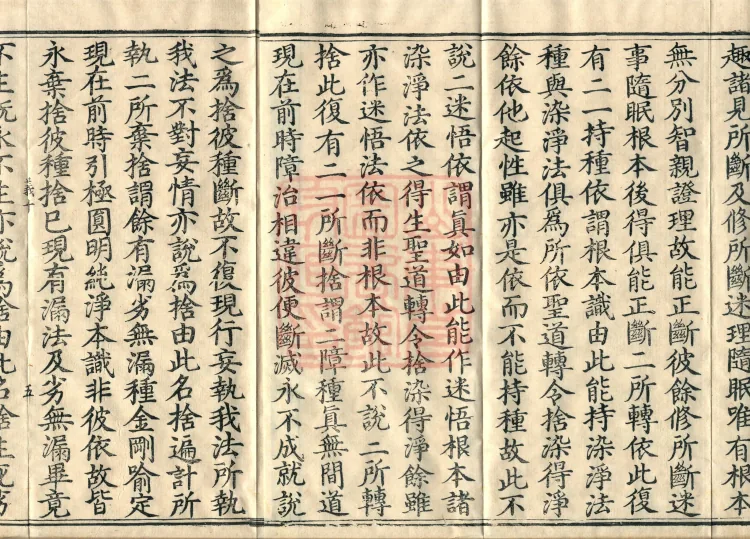 趣諸見所斷及修所斷迷理隨眠唯有根本
無分別智親證理故能正斷彼餘修所斷迷
事隨眠根本後得俱能正斷二所轉依此復
有二一持種依謂根本識由此能持染淨法
種與染淨法俱為所依聖道轉令捨染得淨
餘依他起性雖亦是依而不能持種故此不
說二迷悟依謂真如由此能作迷悟根本諸
染淨法依之得生聖道轉令捨染得淨餘雖
亦作迷悟法依而非根本故此不說二所轉
捨此復有二一所斷捨謂二障種真無間道
現在前時障治相違彼便斷滅永不成就說
之為捨彼種斷故不復現行妄執我法所執
我法不對妄情亦說為捨由此名捨遍計所
執二所棄捨謂餘有漏劣無漏種金剛喻定
現在前時引極圓明純淨本識非彼依故皆
永棄捨彼種捨已現有漏法及劣無漏畢竟
義十 五
不生既永不生亦說為捨由此名捨生死劣